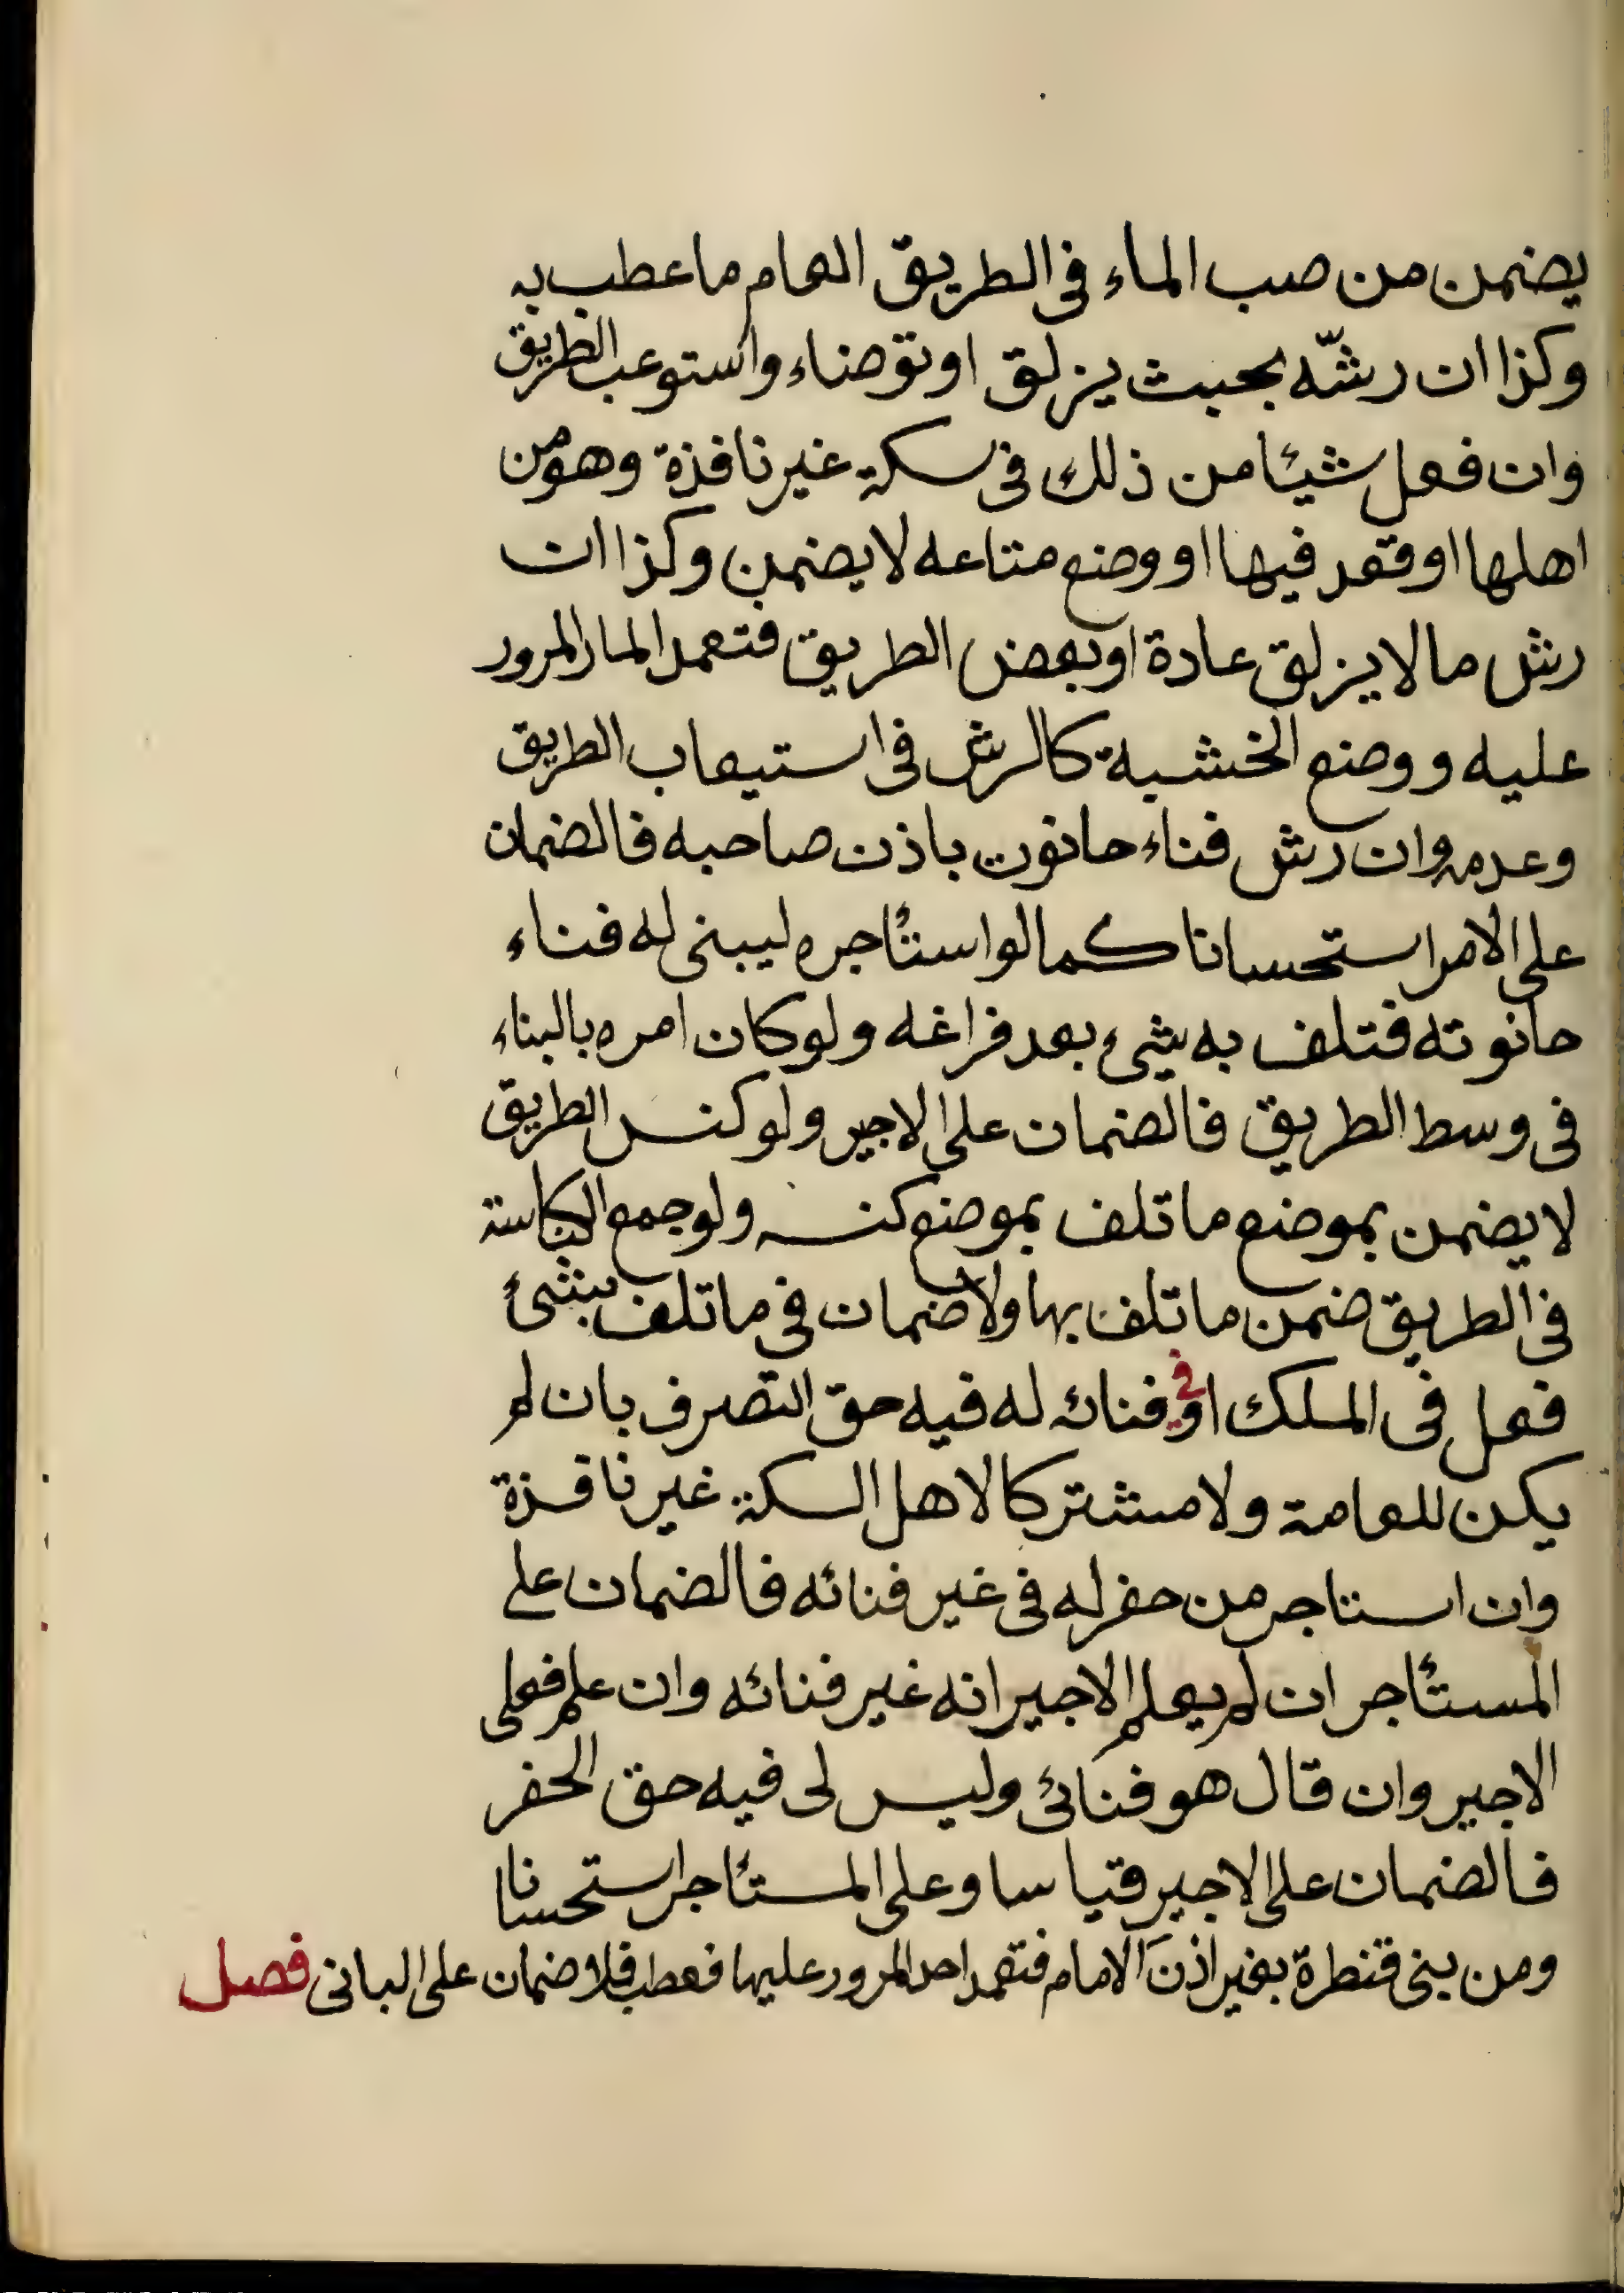 يضمن من صب الماء فى الطريق العام ما عطب به
وكذا ان رشّه بحيث يزلق او توضاء واستوعب الطريق
وان فعل شيئا من ذلك فى سكة غير نافذة وهو من
اهلها او قعد فيها او وضع متاعه لا يضمن وكذا ان
رش ما لا يزلق عادة او بعض الطريق فتعمد المار المرور
عليه ووضع الخشبة كالرش فى استيعاب الطريق
وعدمه وان رش فناء حانوت باذن صاحبه فالضمان
على الامر استحسانا كما لو استئاجره ليبنى له فناء
حانوته فتلف به شئ بعد فراغه ولو كان امره بالبناء
فى وسط الطريق فالضمان على الاجير ولو كنس الطريق
لا يضمن بموضع ما تلف بموضع كنسه ولو جمع الكناسة
فى الطريق ضمن ما تلف بها ولا ضمان فى ما تلف بشئ
فعل فى الملك او فى فنائه له فيه حق التصرف بان لم
يكن للعامة ولا مشتركا لاهل السكة غير نافذة
وان استاجر من حفر له فى غير فنائه فالضمان على
المستئاجر ان لم يعلم الاجير انه غير فنائه وان علم فعلى
الاجير وان قال هو فنائى وليس لى فيه حق الحفر
فالضمان على الاجير قياسا وعلى المستئاجر استحسانا
ومن بنى قنطرة بغير اذن الامام فتعمد احد المرور عليها فعطب فلا ضمان على البانى فصل